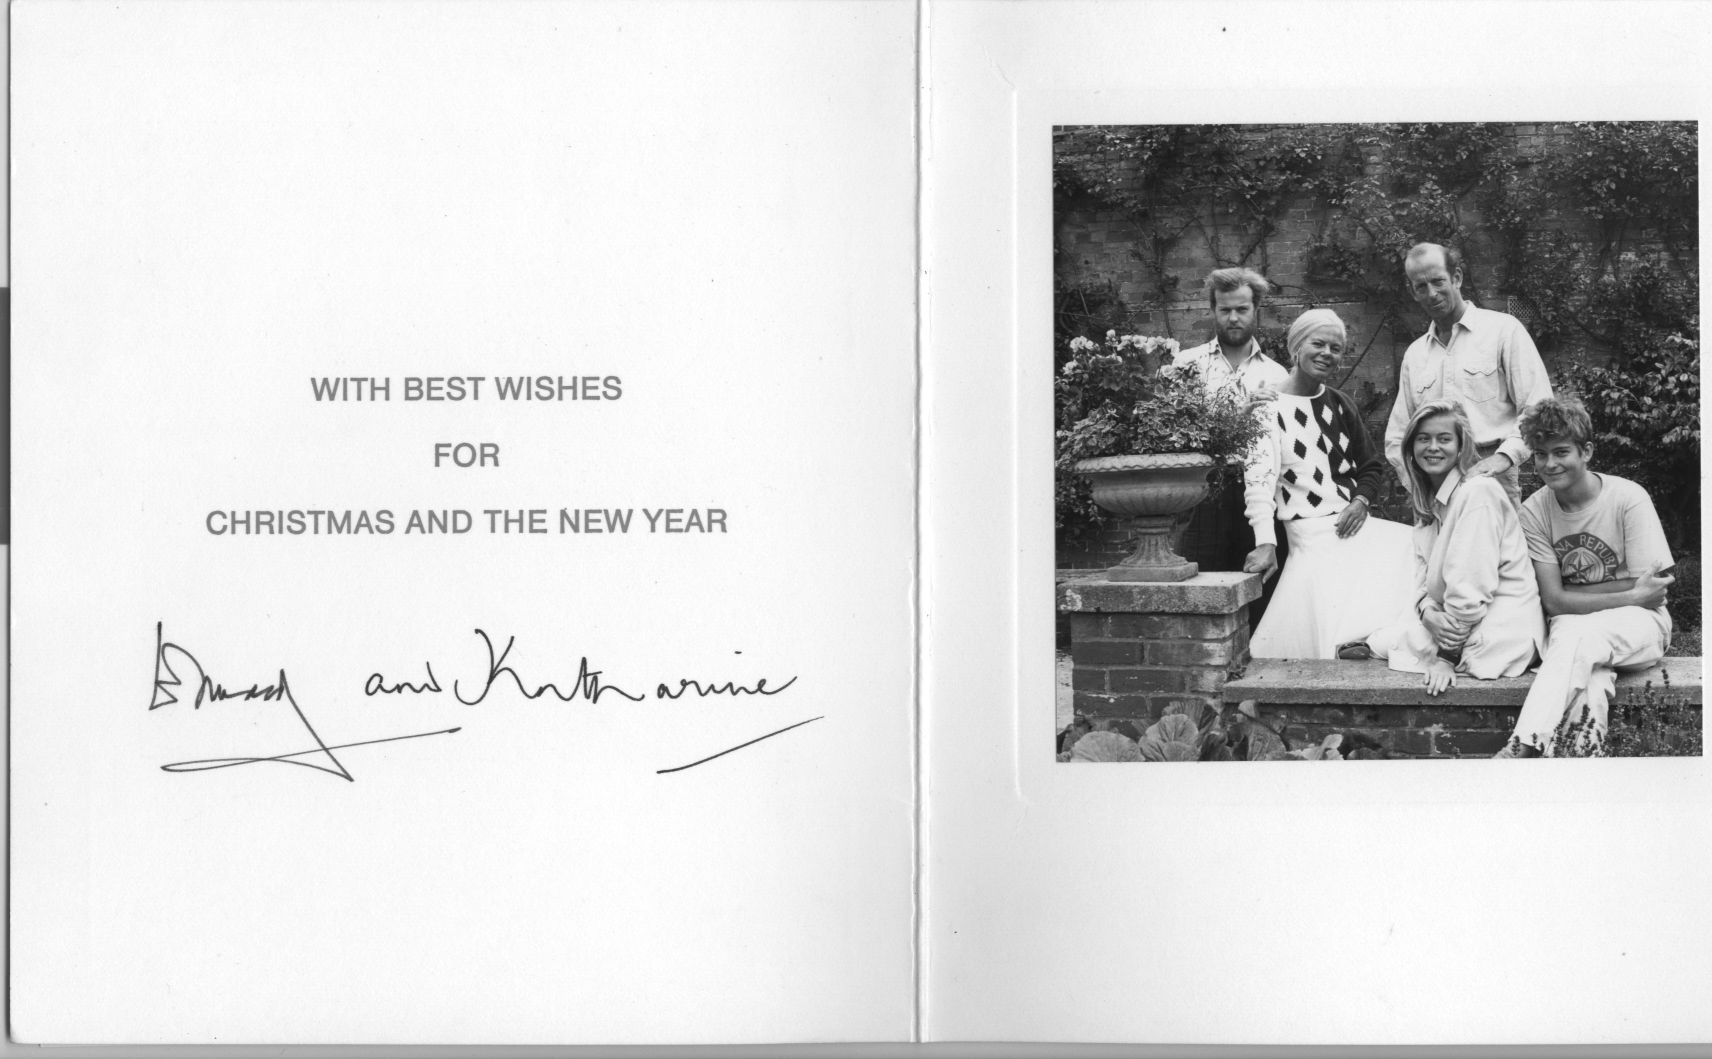 WITH BEST WISHES
FOR
CHRISTMAS AND THE NEW YEAR
Edward and Katharine
NA REPUBLIC